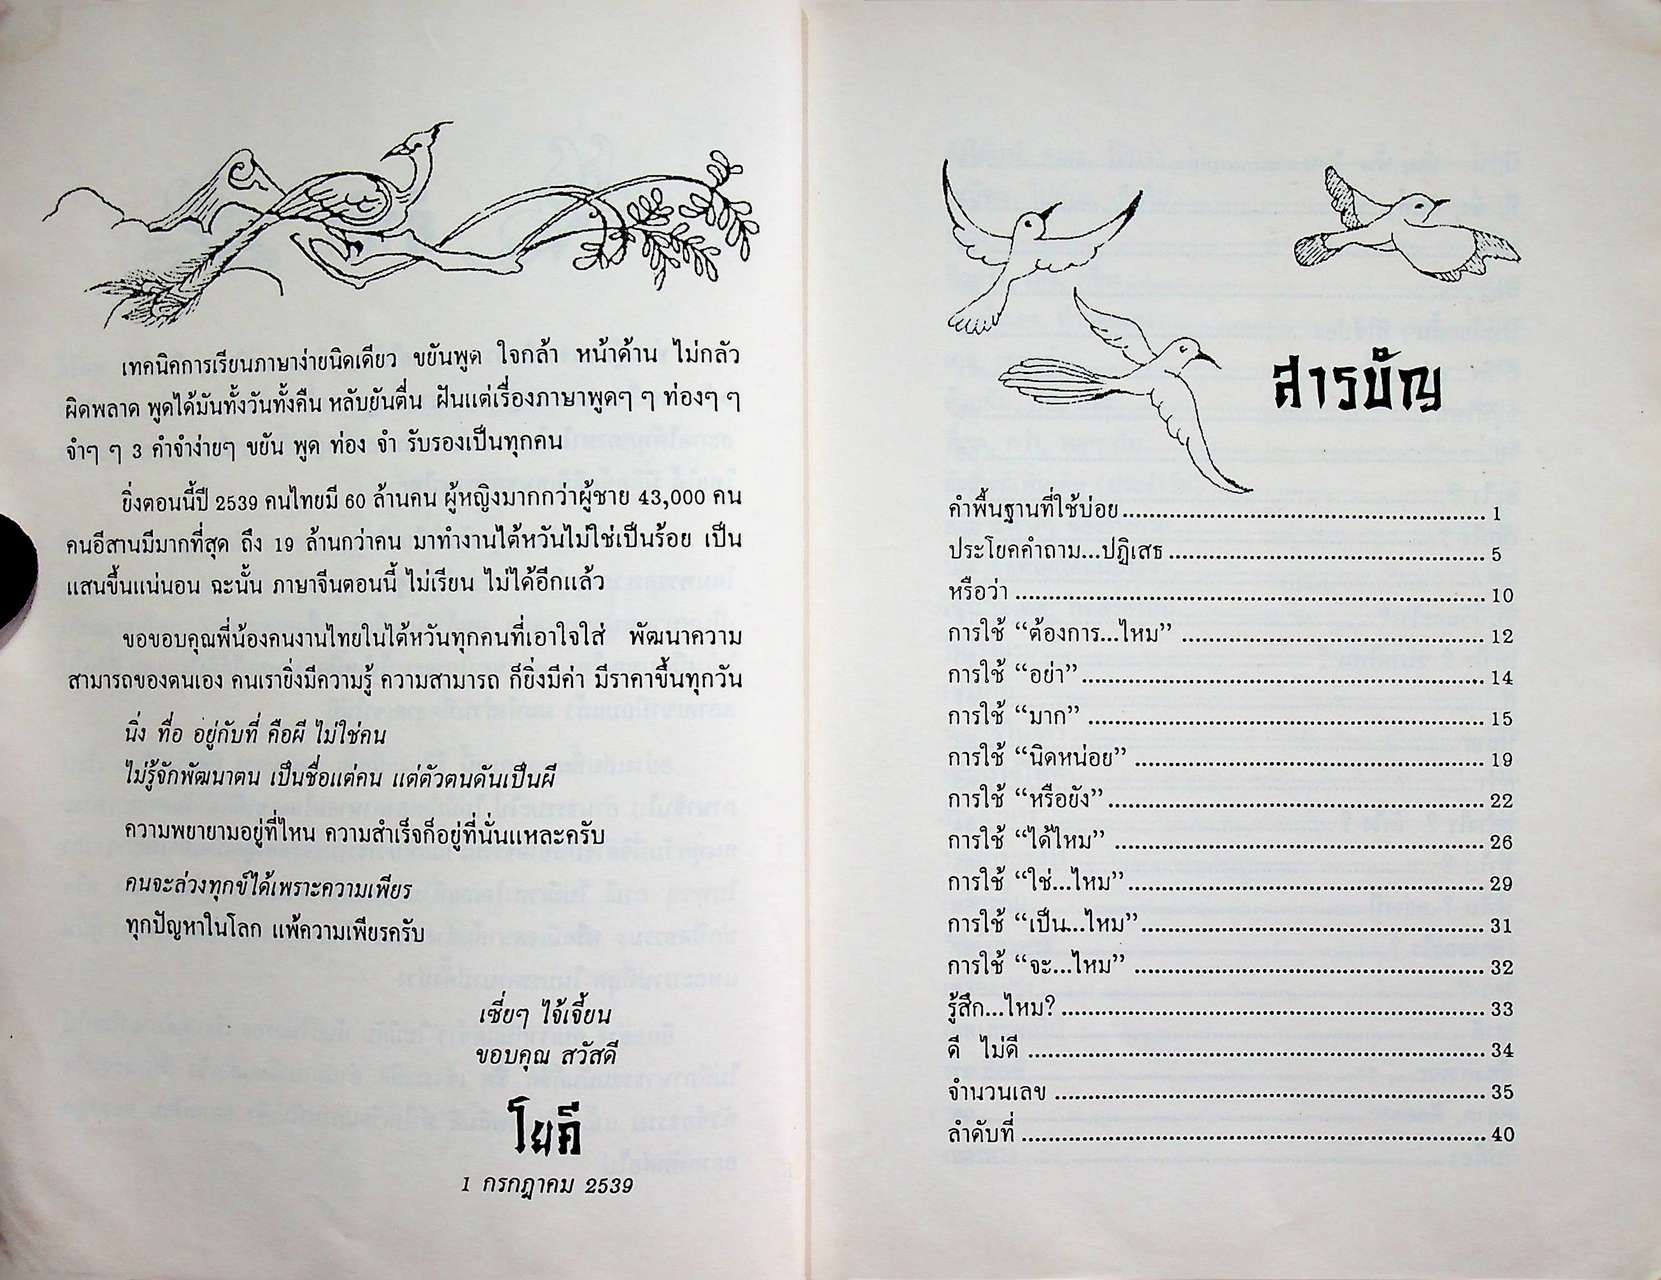 เทคนิคการเรียนภาษาง่ายนิดเดียว ขยันพูด ใจกล้า หน้าด้าน ไม่กลัว
ผิดพลาด พูดได้มันทั้งวันทั้งคืน หลับยันตื่น ฝันแต่เรื่องภาษาพูดๆ ๆ ท่องๆ ๆ
จำๆ ๆ 3 คำจำง่ายๆ ขยัน พูด ท่อง จำ รับรองเป็นทุกคน
ยิ่งตอนนี้ปี 2539 คนไทยมี 60 ล้านคน ผู้หญิงมากกว่าผู้ชาย 43,000 คน
คนอีสานมีมากที่สุด ถึง 19 ล้านกว่าคน มาทำงานไต้หวันไม่ใช่เป็นร้อย เป็น
แสนขึ้นแน่นอน ฉะนั้น ภาษาจีนตอนนี้ ไม่เรียน ไม่ได้อีกแล้ว
ขอขอบคุณพี่น้องคนงานไทยในไต้หวันทุกคนที่เอาใจใส่ พัฒนาความ
สามารถของตนเอง คนเรายิ่งมีความรู้ ความสามารถ ก็ยิ่งมีค่า มีราคาขึ้นทุกวัน
นิ่ง ทื่อ อยู่กับที่ คือผี ไม่ใช่คน
ไม่รู้จักพัฒนาตน เป็นชื่อแต่คน แต่ตัวตนดันเป็นผี
ความพยายามอยู่ที่ไหน ความสำเร็จก็อยู่ที่นั่นแหละครับ
คนจะล่วงทุกข์ได้เพราะความเพียร
ทุกปัญหาในโลก แพ้ความเพียรครับ
เซี่ยๆ ไจ้เจี้ยน
ขอบคุณ สวัสดี
โยคี
1 กรกฎาคม 2539
สารบัญ
คำพื้นฐานที่ใช้บ่อย........................................ 1
ประโยคคำถาม...ปฏิเสธ........................................ 5
หรือว่า ........................................ 10
การใช้ “ต้องการ...ไหม” ........................................ 12
การใช้ “อย่า”........................................ 14
การใช้ “มาก” ........................................ 15
การใช้ “นิดหน่อย” ........................................ 19
การใช้ “หรือยัง”........................................ 22
การใช้ “ได้ไหม” ........................................ 26
การใช้ “ใช่...ไหม”........................................ 29
การใช้ “เป็น...ไหม”........................................ 31
การใช้ “จะ...ไหม” ........................................ 32
รู้สึก...ไหม?........................................ 33
ดี ไม่ดี ........................................ 34
จำนวนเลข ........................................ 35
ลำดับที่ ........................................ 40